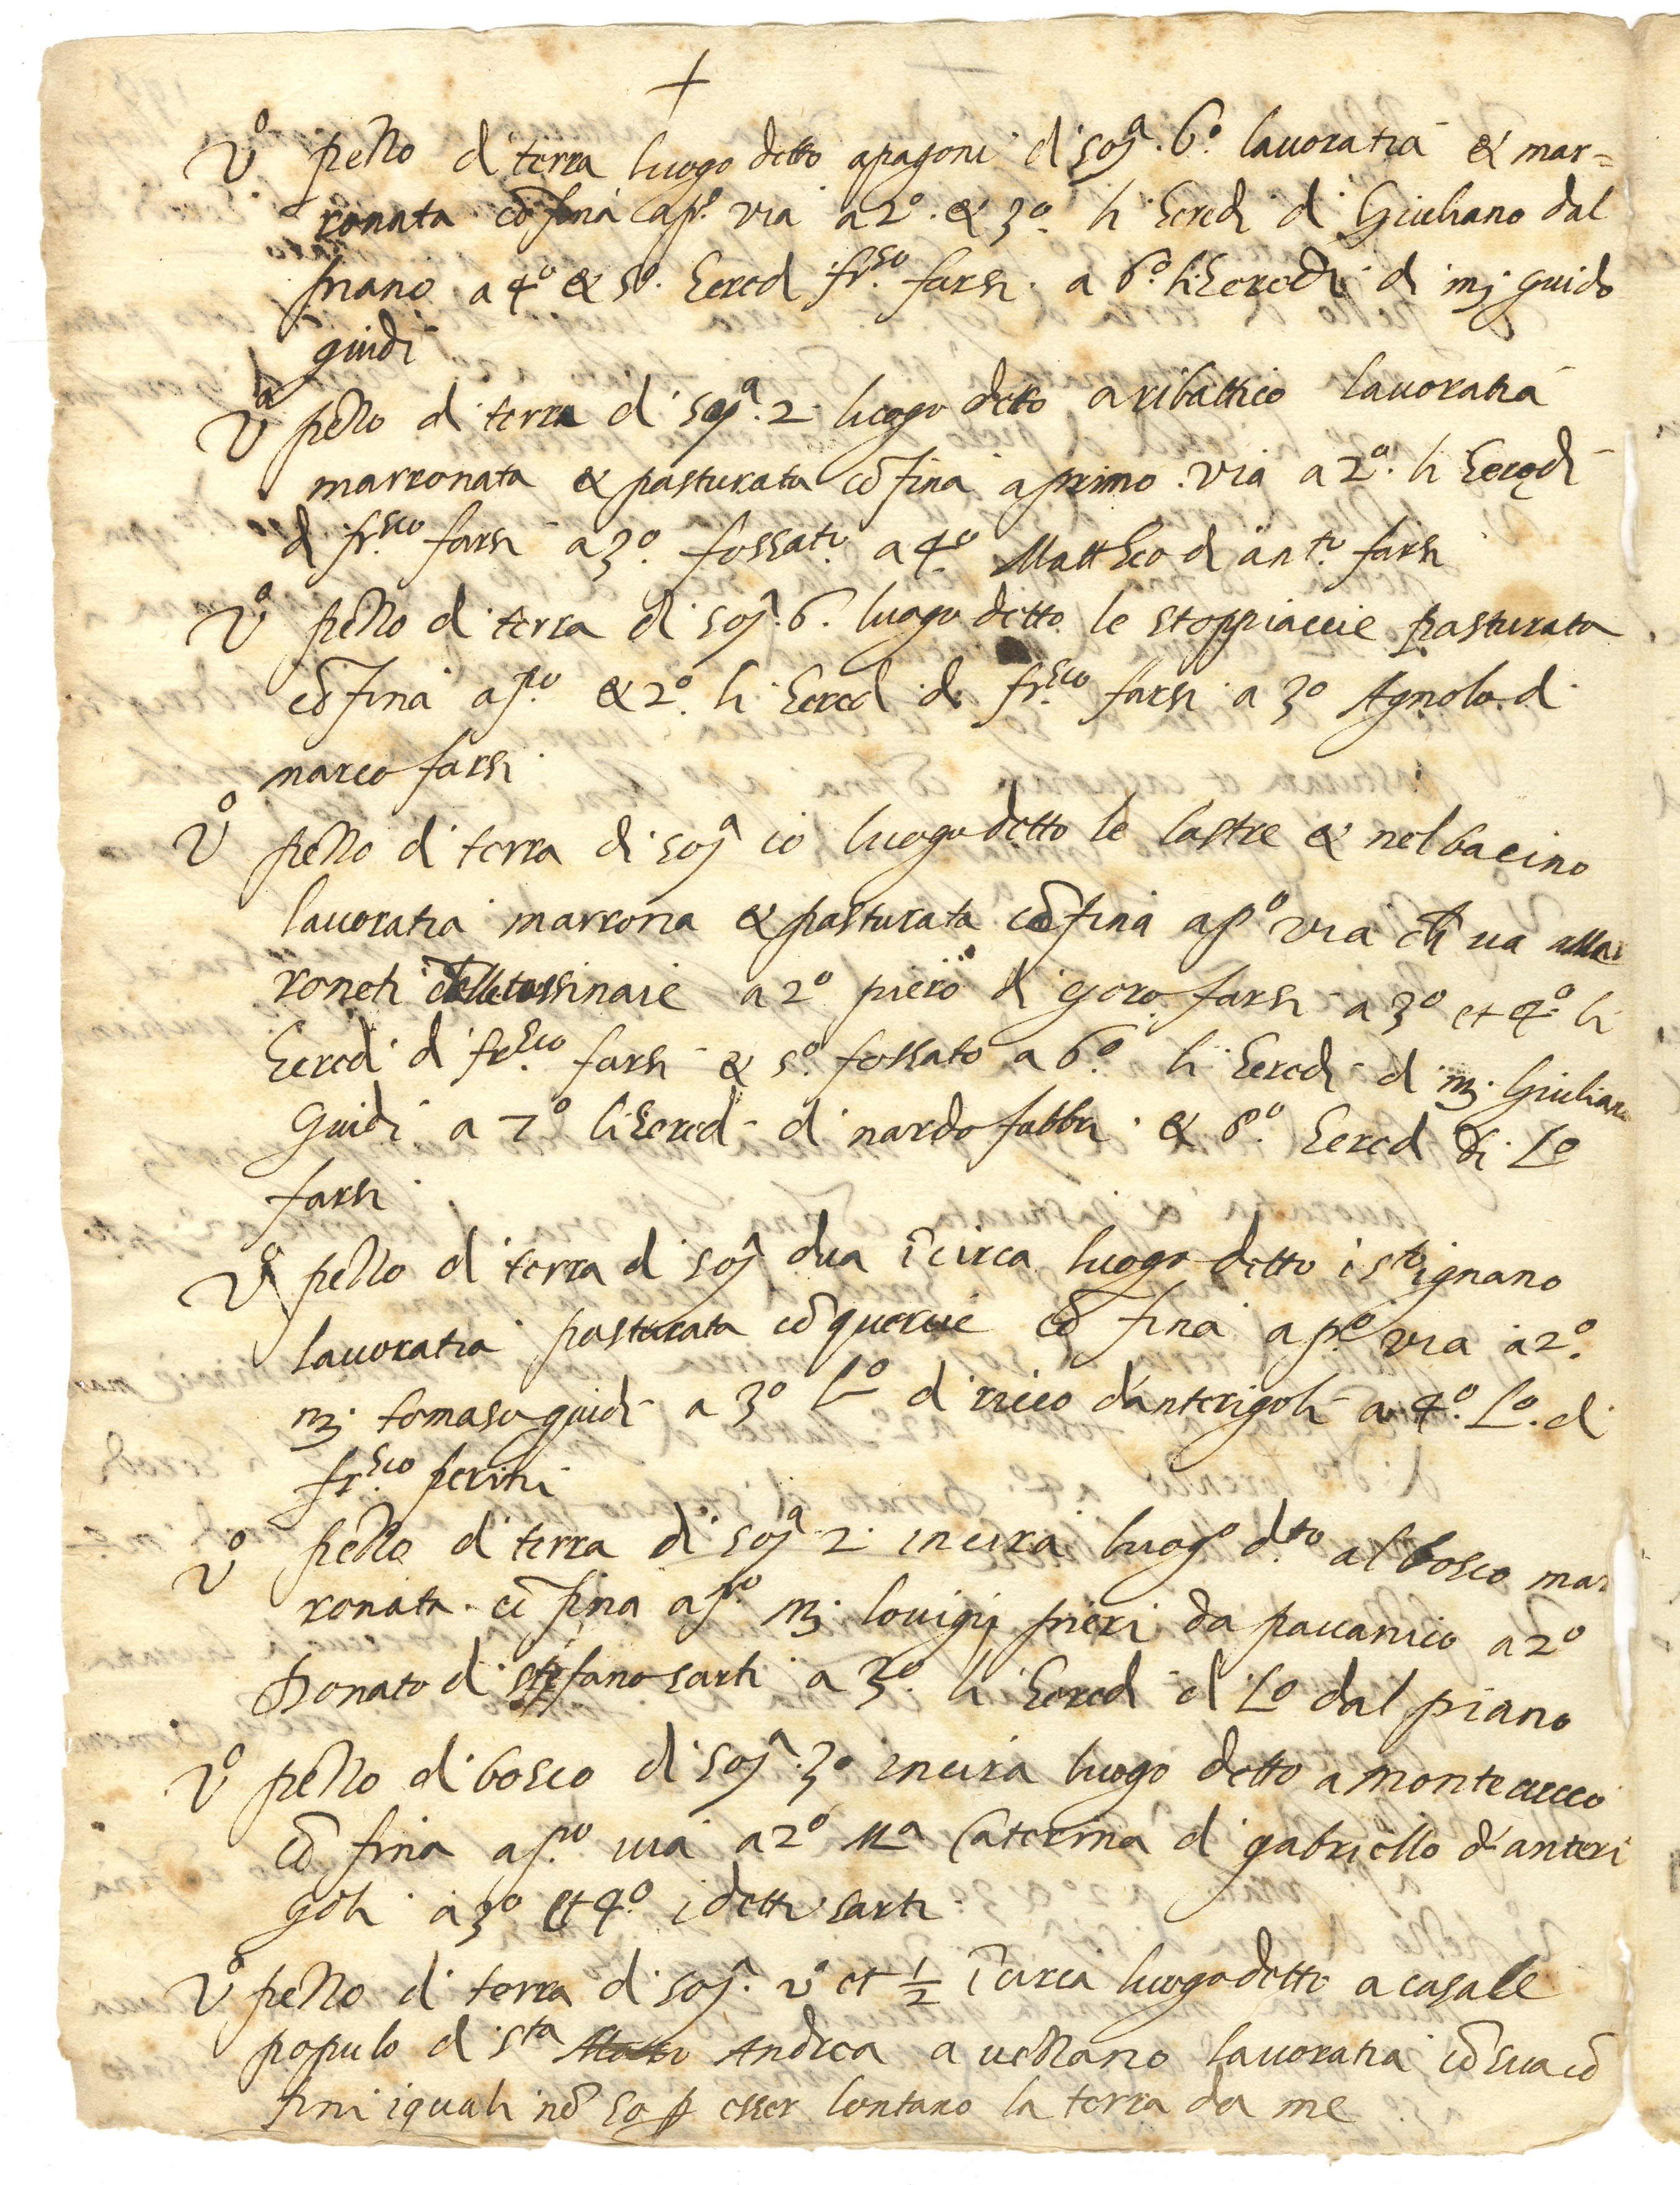 +
Vº pezzo di terra luogo detto apagoni di soiª. 6º. lavoratia & mar=
ronata cõfina apº. via a 2º. & 3º. li heredi di Giuliano dal
piano a 4º & 5º. hered frscº. farsi. a 6º. li heredi di mj guido
guidi
Vº pezzo di terra di soiª. 2 luogo detto aribattico lavoratia
marronata & pasturata cõfina a primo. via a 2º. li heredi
di frscº farsi a 3º. fossato. a 4º Mattheo di antº. farsi
Vº pezzo di terra di soiª. 6. luogo detto le stoppiaccie pasturata
cõfina apº. & 2º. li hered di frscº farsi a 3º Agnolo. di
marco farsi
Vº pezzo di terra di soiª io luogo detto le lastre & nel bacino
lavoratia marrona & pasturata cõfina apº via ch ua alla
roneti dalle tassinaie a 2º piero di goro farsi a 3º et 4º li
heredi di frscº farsi & 5º. fossato a 6º. li heredi di mj. Giuliano
Guidi a 7º li hered di nardo fabbri. & 8º. hered di Lº
farsi.
Vº pezzo di terra di soiª dua ĩcirca luogo detto i stignano
lavoratia pasturata cõ quercie cõfina apº. via a 2º.
mj. tomaso guidi a 3º Lº di ricco d'anterigoli a 4º. Lº. di
frscº perini
Vº pezzo di terra di soiª 2 incira luogº dto al bosco mar
ronata. cõfina apº. mj. lovigij pieri da paccanico a 2º
Donato di stefano sarti a 3º. li hered di Lº dal piano
Vº pezzo di bosco di soiª. 3º incira luogo detto a montecucco
cõfina apº. uia a 2º Mª Caterina di gabriello d'anteri
goli a 3º et 4º. i detti sarti
Vº pezzo di terra di soiª. vº et ½ ĩcirca luogo detto a casale
populo di Sta Andrea a uezzano lavoratia cõ sua cõ
fini iquali nõ so p esser lontano la terra da me